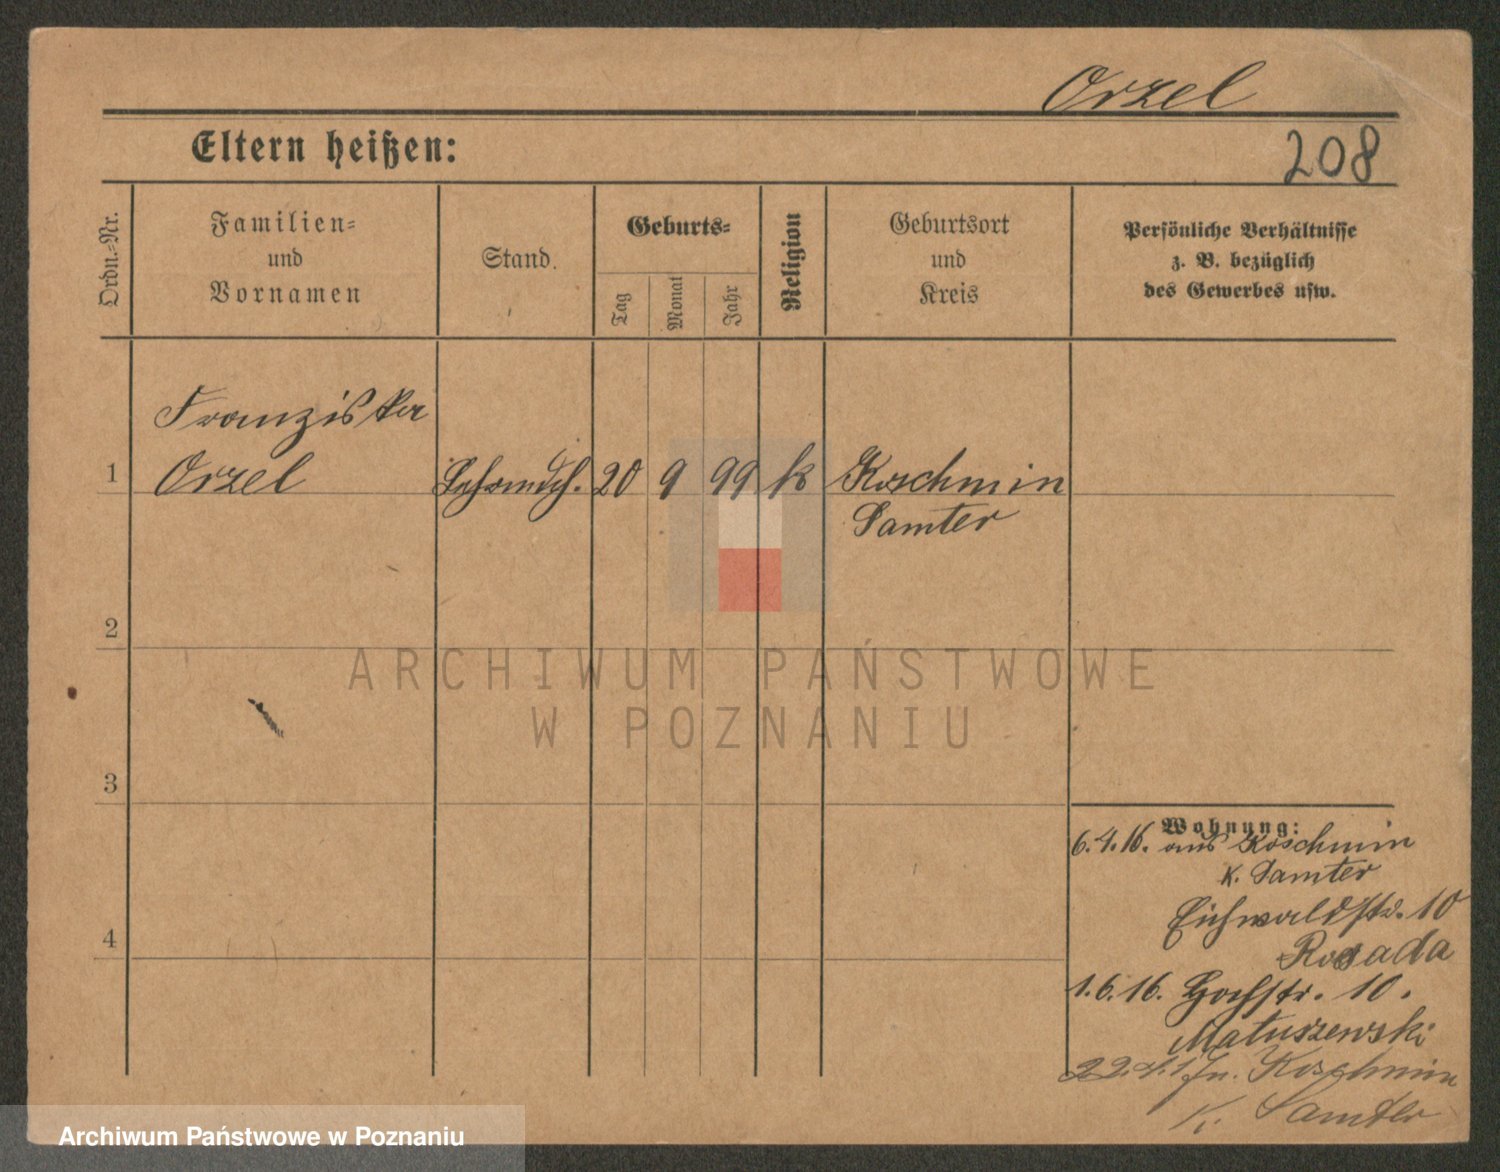 Orzel
Eltern heißen:
208
Ordn.=Nr.
Familien=
und
Vornamen
Stand.
Geburts=
Tag
Monat
Jahr
Religion
Geburtsort
und
Kreis
Persönliche Verhältnisse
z. B. bezüglich
des Gewerbes usw.
1
Franziska
Orzel
Lehrmdch.
20
9
99
k
Koschmin
Samter
2
3
4
ARCHIWUM PAŃSTWOWE
W POZNANIU
Wohnung:
6.4.16. aus Koschmin
K. Samter
Eichwaldstr. 10
1.6.16. Hochstr. 10.
Matuszewski
Koschmin
K. Samter
Archiwum Państwowe w Poznaniu